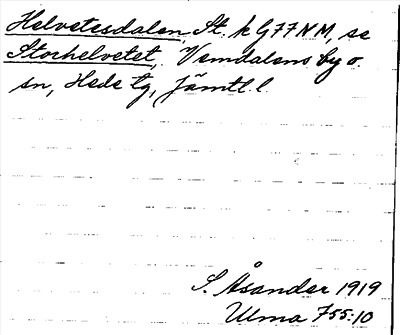 Helvetesdalen, St. k G77NM, se
Storhelvetet, Vemdalens by o.
sn, Hede tg, Jämtl. l.
S. Åsander 1919
Ulma 755:10